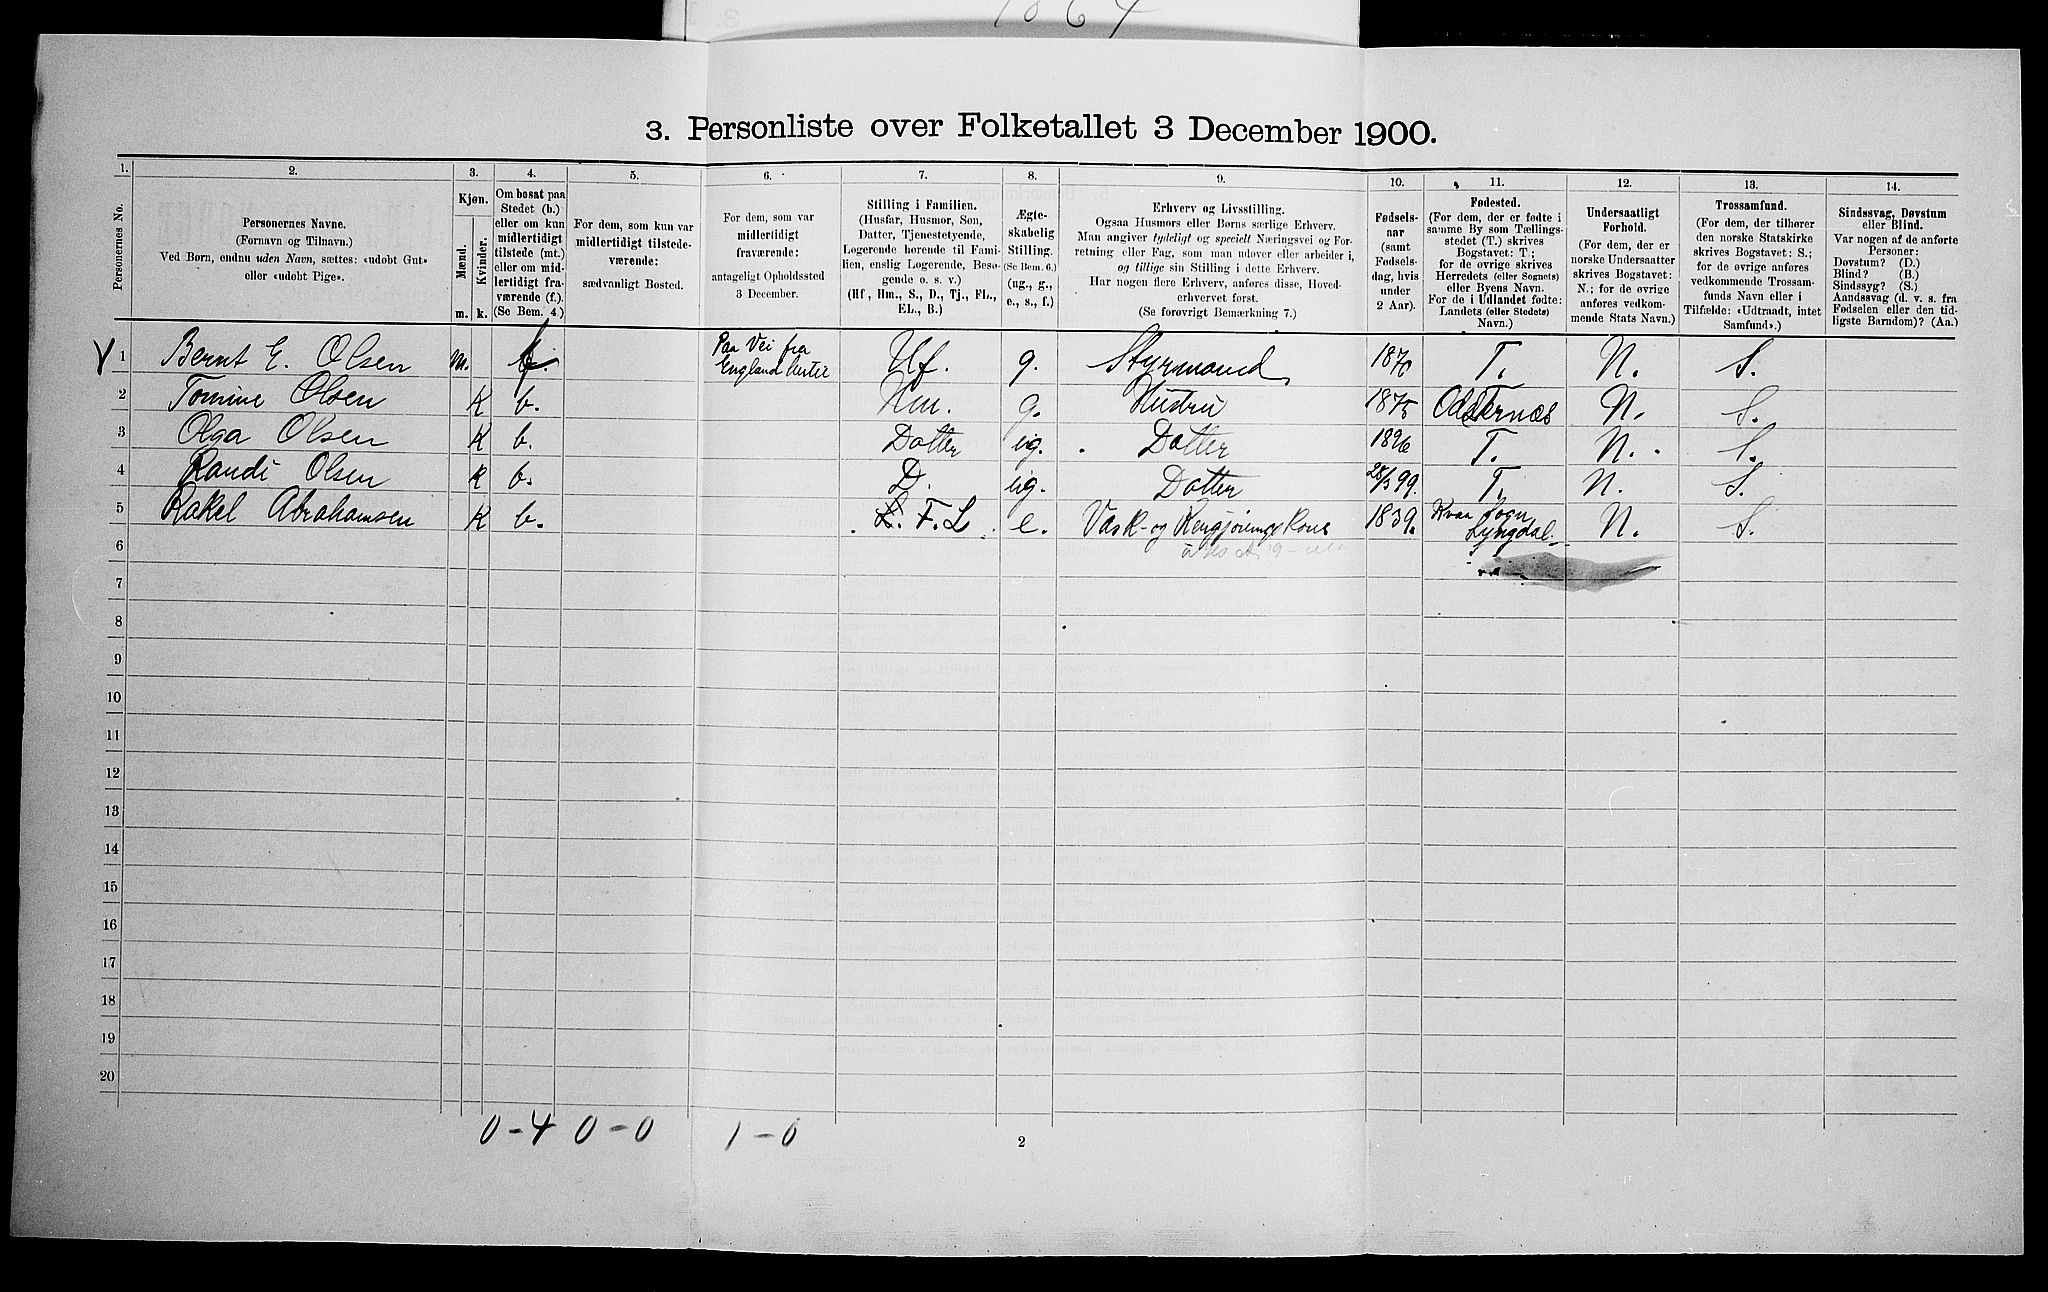 1864
3. Personliste over Folketallet 3 December 1900.
1. 2. 3. 4. 5. 6. 7. 8. 9. 10. 11. 12. 13. 14.
Personernes No.
Personernes Navne.
(Fornavn og Tilnavn.)
Ved Børn, endnu uden Navn, sættes: «udøbt Gut»
eller «udøbt Pige».
Kjøn.
Mænd.
Kvinder.
m. k.
Om bosat paa
Stedet (b.)
eller om kun
midlertidigt
tilstede (mt.)
eller om mid-
lertidigt fra-
værende (f.).
(Se Bem. 4.)
For dem, som kun var
midlertidigt tilstede-
værende:
sædvanligt Bosted.
For dem, som var
midlertidigt
fraværende:
antageligt Opholdssted
3 December.
Stilling i Familien.
(Husfar, Husmor, Søn,
Datter, Tjenestetyende,
Logerende hørende til Fami-
lien, enslig Logerende, Besø-
gende o. s. v.)
(Hf., Hm., S., D., Tj., FL.,
EL., B.)
Ægte-
skabelig
Stilling.
(Se Bem. 6.)
(ug., g.,
e., s., f.)
Erhverv og Livsstilling.
Ogsaa Husmors eller Børns særlige Erhverv.
Man angiver tydeligt og specielt Næringsvei og For-
retning eller Fag, som man udøver eller arbeider i,
og tillige sin Stilling i dette Erhverv.
Har nogen flere Erhverv, anføres disse, Hoved-
erhvervet først.
(Se forøvrigt Bemærkning 7.)
Fødsels-
aar
(samt
Fødsels-
dag, hvis
under
2 Aar).
Fødested.
(For dem, der er fødte i
samme By som Tællings-
stedet (T.) skrives
Bogstavet: T.;
for de øvrige skrives
Herredets (eller Sognets)
eller Byens Navn.
For de i Udlandet fødte:
Landets (eller Stedets)
Navn.)
Undersaatligt
Forhold.
(For dem, der er
norske Undersaatter
skrives Bogstavet:
N.; for de øvrige
anføres vedkom-
mende Stats Navn.)
Trossamfund.
(For dem, der tilhører
den norske Statskirke
skrives Bogstavet: S.;
for de øvrige anføres
vedkommende Trossam-
funds Navn eller i
Tilfælde: «Udtraadt, intet
Samfund».)
Sindssvag, Døvstum
eller Blind.
Var nogen af de anførte
Personer:
Døvstum? (D.)
Blind? (B.)
Sindssyg? (S.)
Aandssvag (d. v. s. fra
Fødselen eller den tid-
ligste Barndom)? (Aa.)
1 Bernt E. Olsen m. f. Paa Vei fra
England Hf. g. Styrmand 1870 T. N. S.
2 Tomine Olsen K b. Hm. g. Hustru 1875 Oddernæs N. S.
3 Olga Olsen K b. Datter ug. Datter 1896 T. N. S.
4 Randi Olsen K b. D. ug. Datter 28/3 99. T. N. S.
5 Rakel Abrahamsen K b. F. L. e. Vask- og Rengjøringskone 1839. Kvaa Sogn
Lyngdal N. S.
6
7
8
9
10
11
12
13
14
15
16
17
18
19
20
0-4 0-0 1-0
2